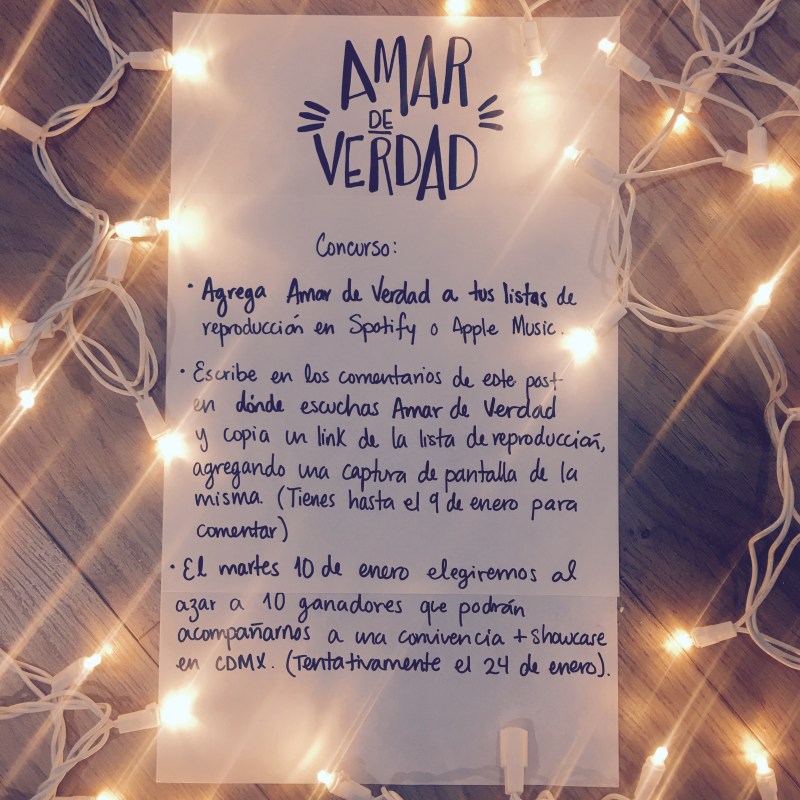 AMAR
DE
VERDAD
Concurso:
• Agrega Amar de Verdad a tus listas de
reproducción en Spotify o Apple Music.
• Escribe en los comentarios de este post
en dónde escuchas Amar de Verdad
y copia un link de la lista de reproducción,
agregando una captura de pantalla de la
misma. (Tienes hasta el 9 de enero para
comentar)
• El martes 10 de enero elegiremos al
azar a 10 ganadores que podrán
acompañarnos a una convivencia + showcase
en CDMX. (Tentativamente el 24 de enero).